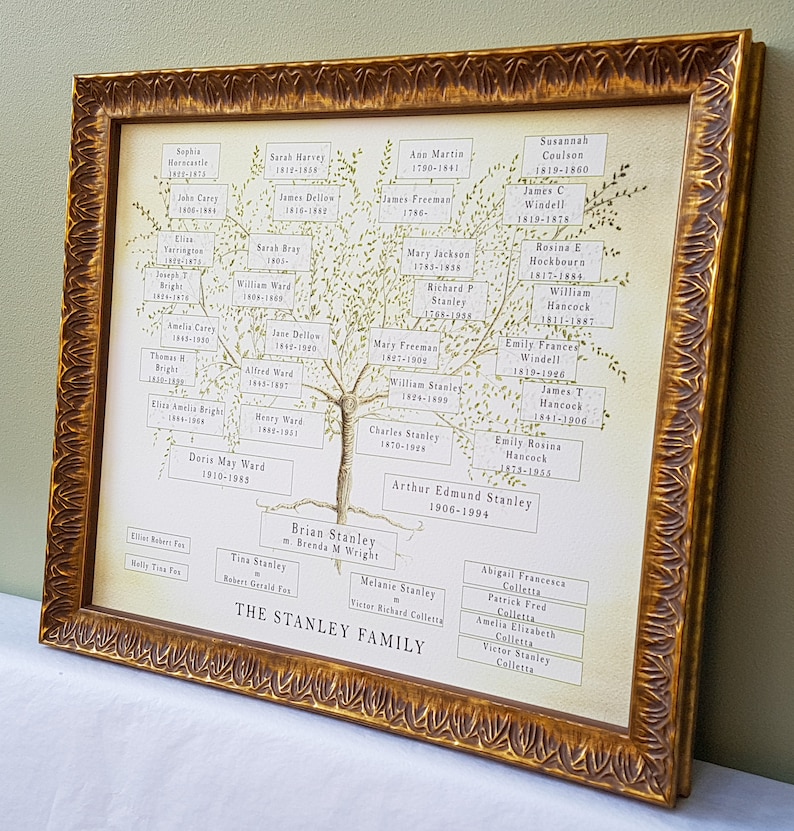 Sophia
Horncastle
1822-1875
Sarah Harvey
1812-1858
Ann Martin
1790-1841
Susannah
Coulson
1819-1860
John Carey
1806-1884
James Dellow
1816-1882
James Freeman
1786-
James C
Windell
1819-1878
Eliza
Yarrington
1822-1875
Sarah Bray
1805-
Mary Jackson
1783-1838
Rosina E
Hockbourn
1817-1884
Joseph T
Bright
1824-1876
William Ward
1808-1869
Richard P
Stanley
1768-1938
William
Hancock
1811-1887
Amelia Carey
1843-1930
Jane Dellow
1842-1920
Mary Freeman
1827-1902
Emily Frances
Windell
1819-1926
Thomas H
Bright
1850-1899
Alfred Ward
1843-1897
William Stanley
1824-1899
James T
Hancock
1841-1906
Eliza Amelia Bright
1884-1968
Henry Ward
1882-1951
Charles Stanley
1870-1928
Emily Rosina
Hancock
1873-1955
Doris May Ward
1910-1983
Arthur Edmund Stanley
1906-1994
Brian Stanley
m. Brenda M Wright
Elliot Robert Fox
Holly Tina Fox
Tina Stanley
m
Robert Gerald Fox
Melanie Stanley
m
Victor Richard Colletta
Abigail Francesca
Colletta
Patrick Fred
Colletta
Amelia Elizabeth
Colletta
Victor Stanley
Colletta
THE STANLEY FAMILY